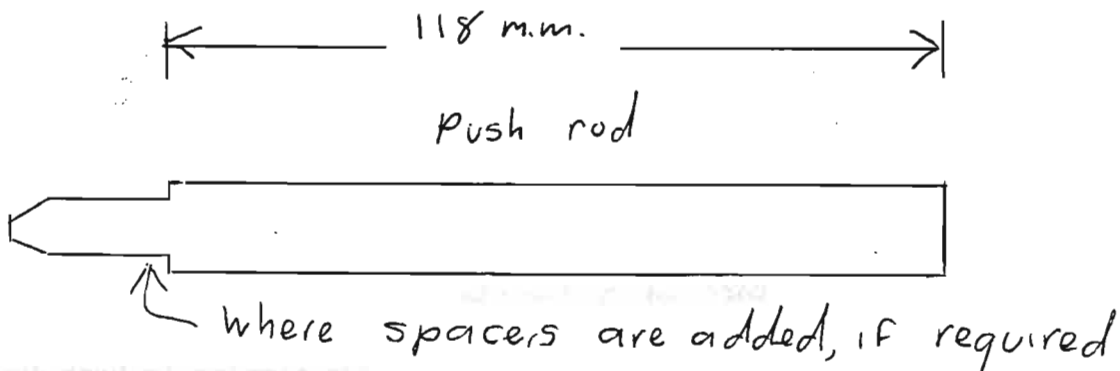 118 m.m.
Push rod
where spacers are added, if required